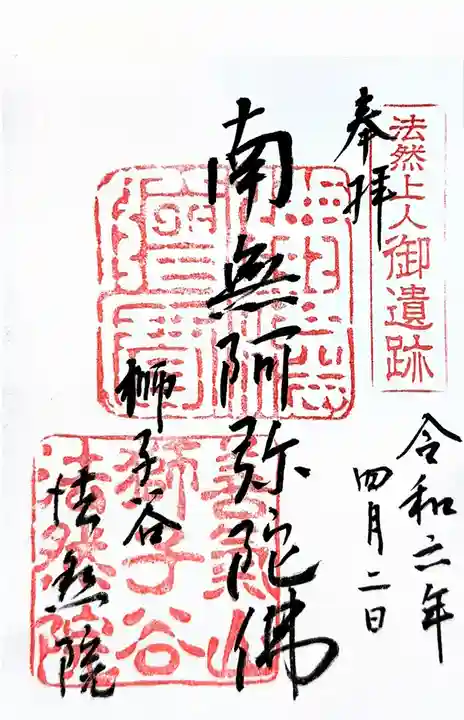 法然上人御遺跡
奉拝
令和六年
四月二日
南無阿弥陀佛
獅子谷
法然院
善氣山
獅子谷
法然院